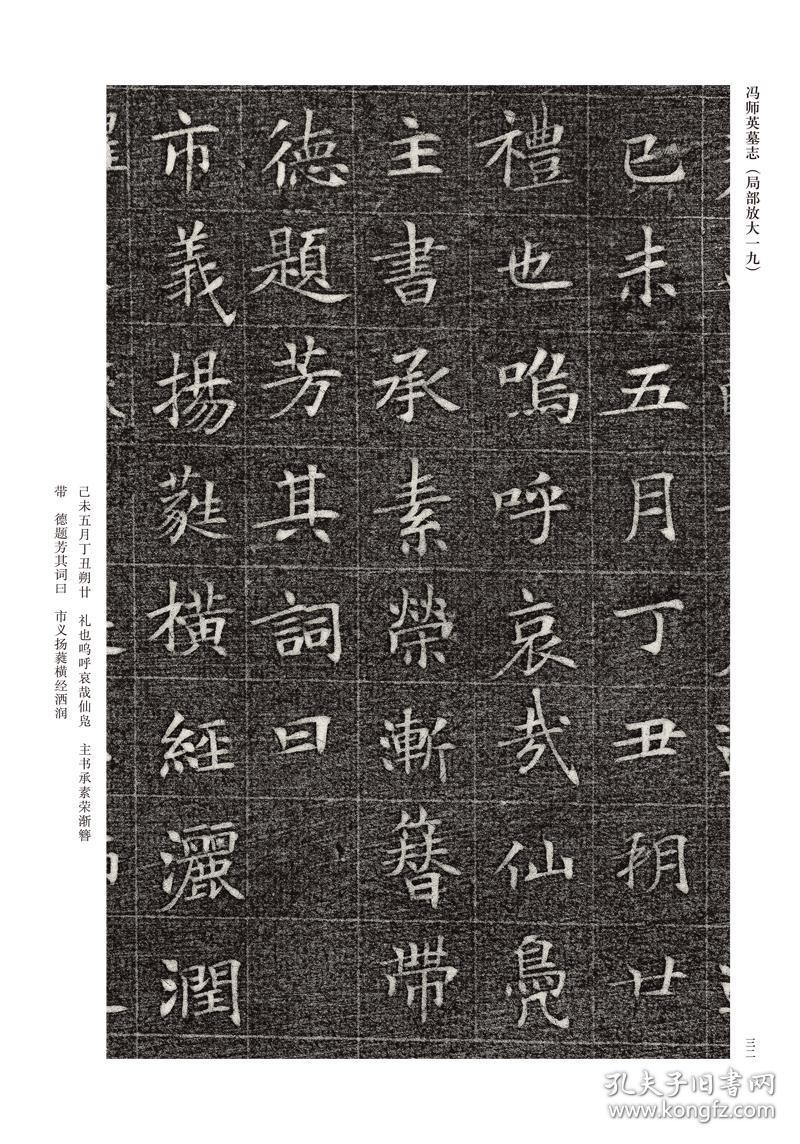 冯师英墓志（局部放大一九）
己未五月丁丑朔廿
禮也嗚呼哀哉仙鳧
主書承素榮漸簪帶
德題芳其詞曰
市義揚蕤橫經灑潤
己未五月丁丑朔廿　礼也呜呼哀哉仙凫　主书承素荣渐簪
带　德题芳其词曰　市义扬蕤横经洒润
三二
孔夫子旧书网
www.kongfz.com